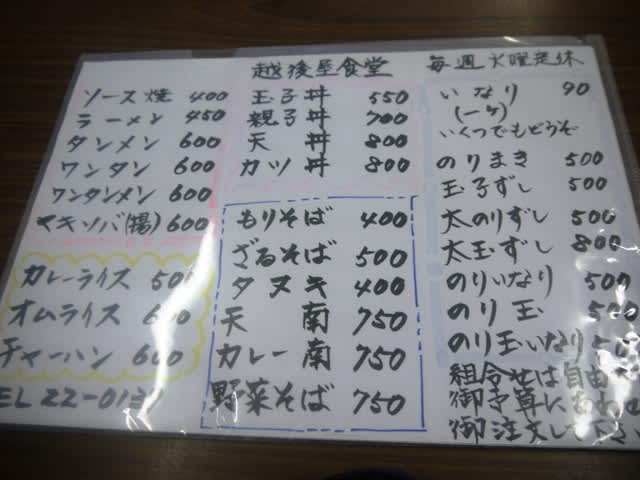 越後屋食堂
毎週火曜定休
ソース焼 400
ラーメン 450
タンメン 600
ワンタン 600
ワンタンメン 600
ヤキソバ(揚) 600
カレーライス 500
オムライス 600
チャーハン 600
TEL 22-013
玉子丼 550
親子丼 700
天丼 800
カツ丼 800
もりそば 400
ざるそば 500
タヌキ 400
天南 750
カレー南 750
野菜そば 750
いなり 90
(一ヶ)
いくつでもどうぞ
のりまき 500
玉子ずし 500
太のりずし 500
太玉ずし 800
のりいなり 500
のり玉 500
のり玉いなり
組合せは自由
御予算にあわ
御注文して下さい